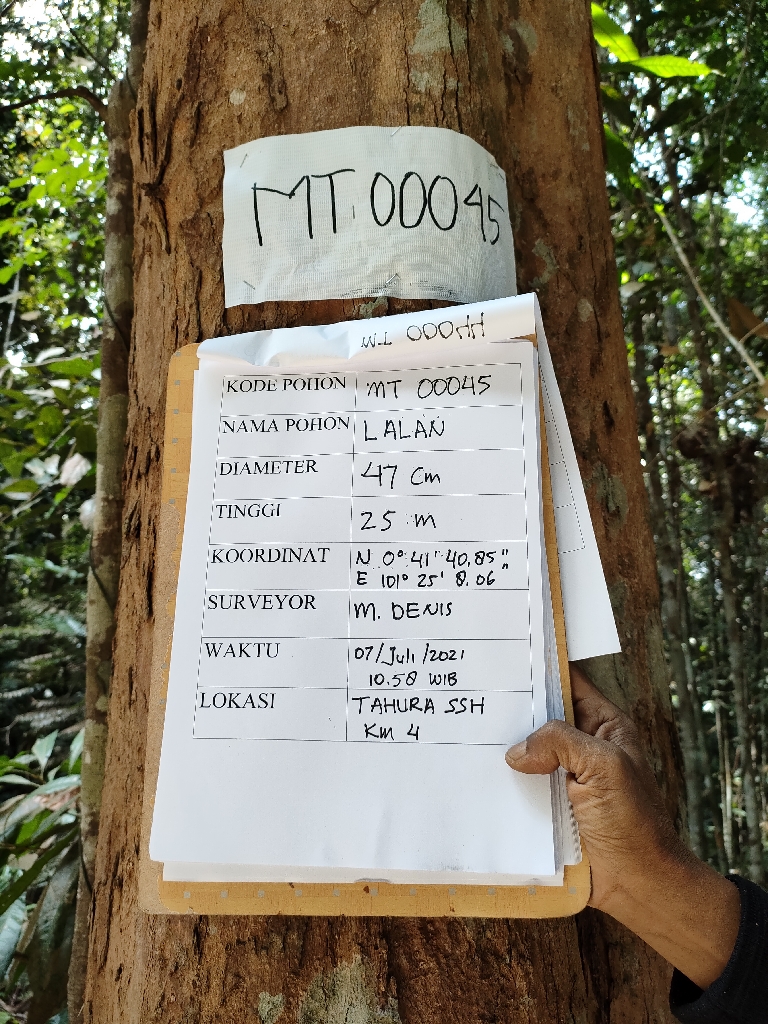 MT 00045
KODE POHON MT 00045
NAMA POHON LALAN
DIAMETER 47 Cm
TINGGI 25 m
KOORDINAT N 0° 41" 40,85"
E 101° 25' 8.06"
SURVEYOR M. DENIS
WAKTU 07/Juli/2021
10.58 WIB
LOKASI TAHURA SSH
Km 4